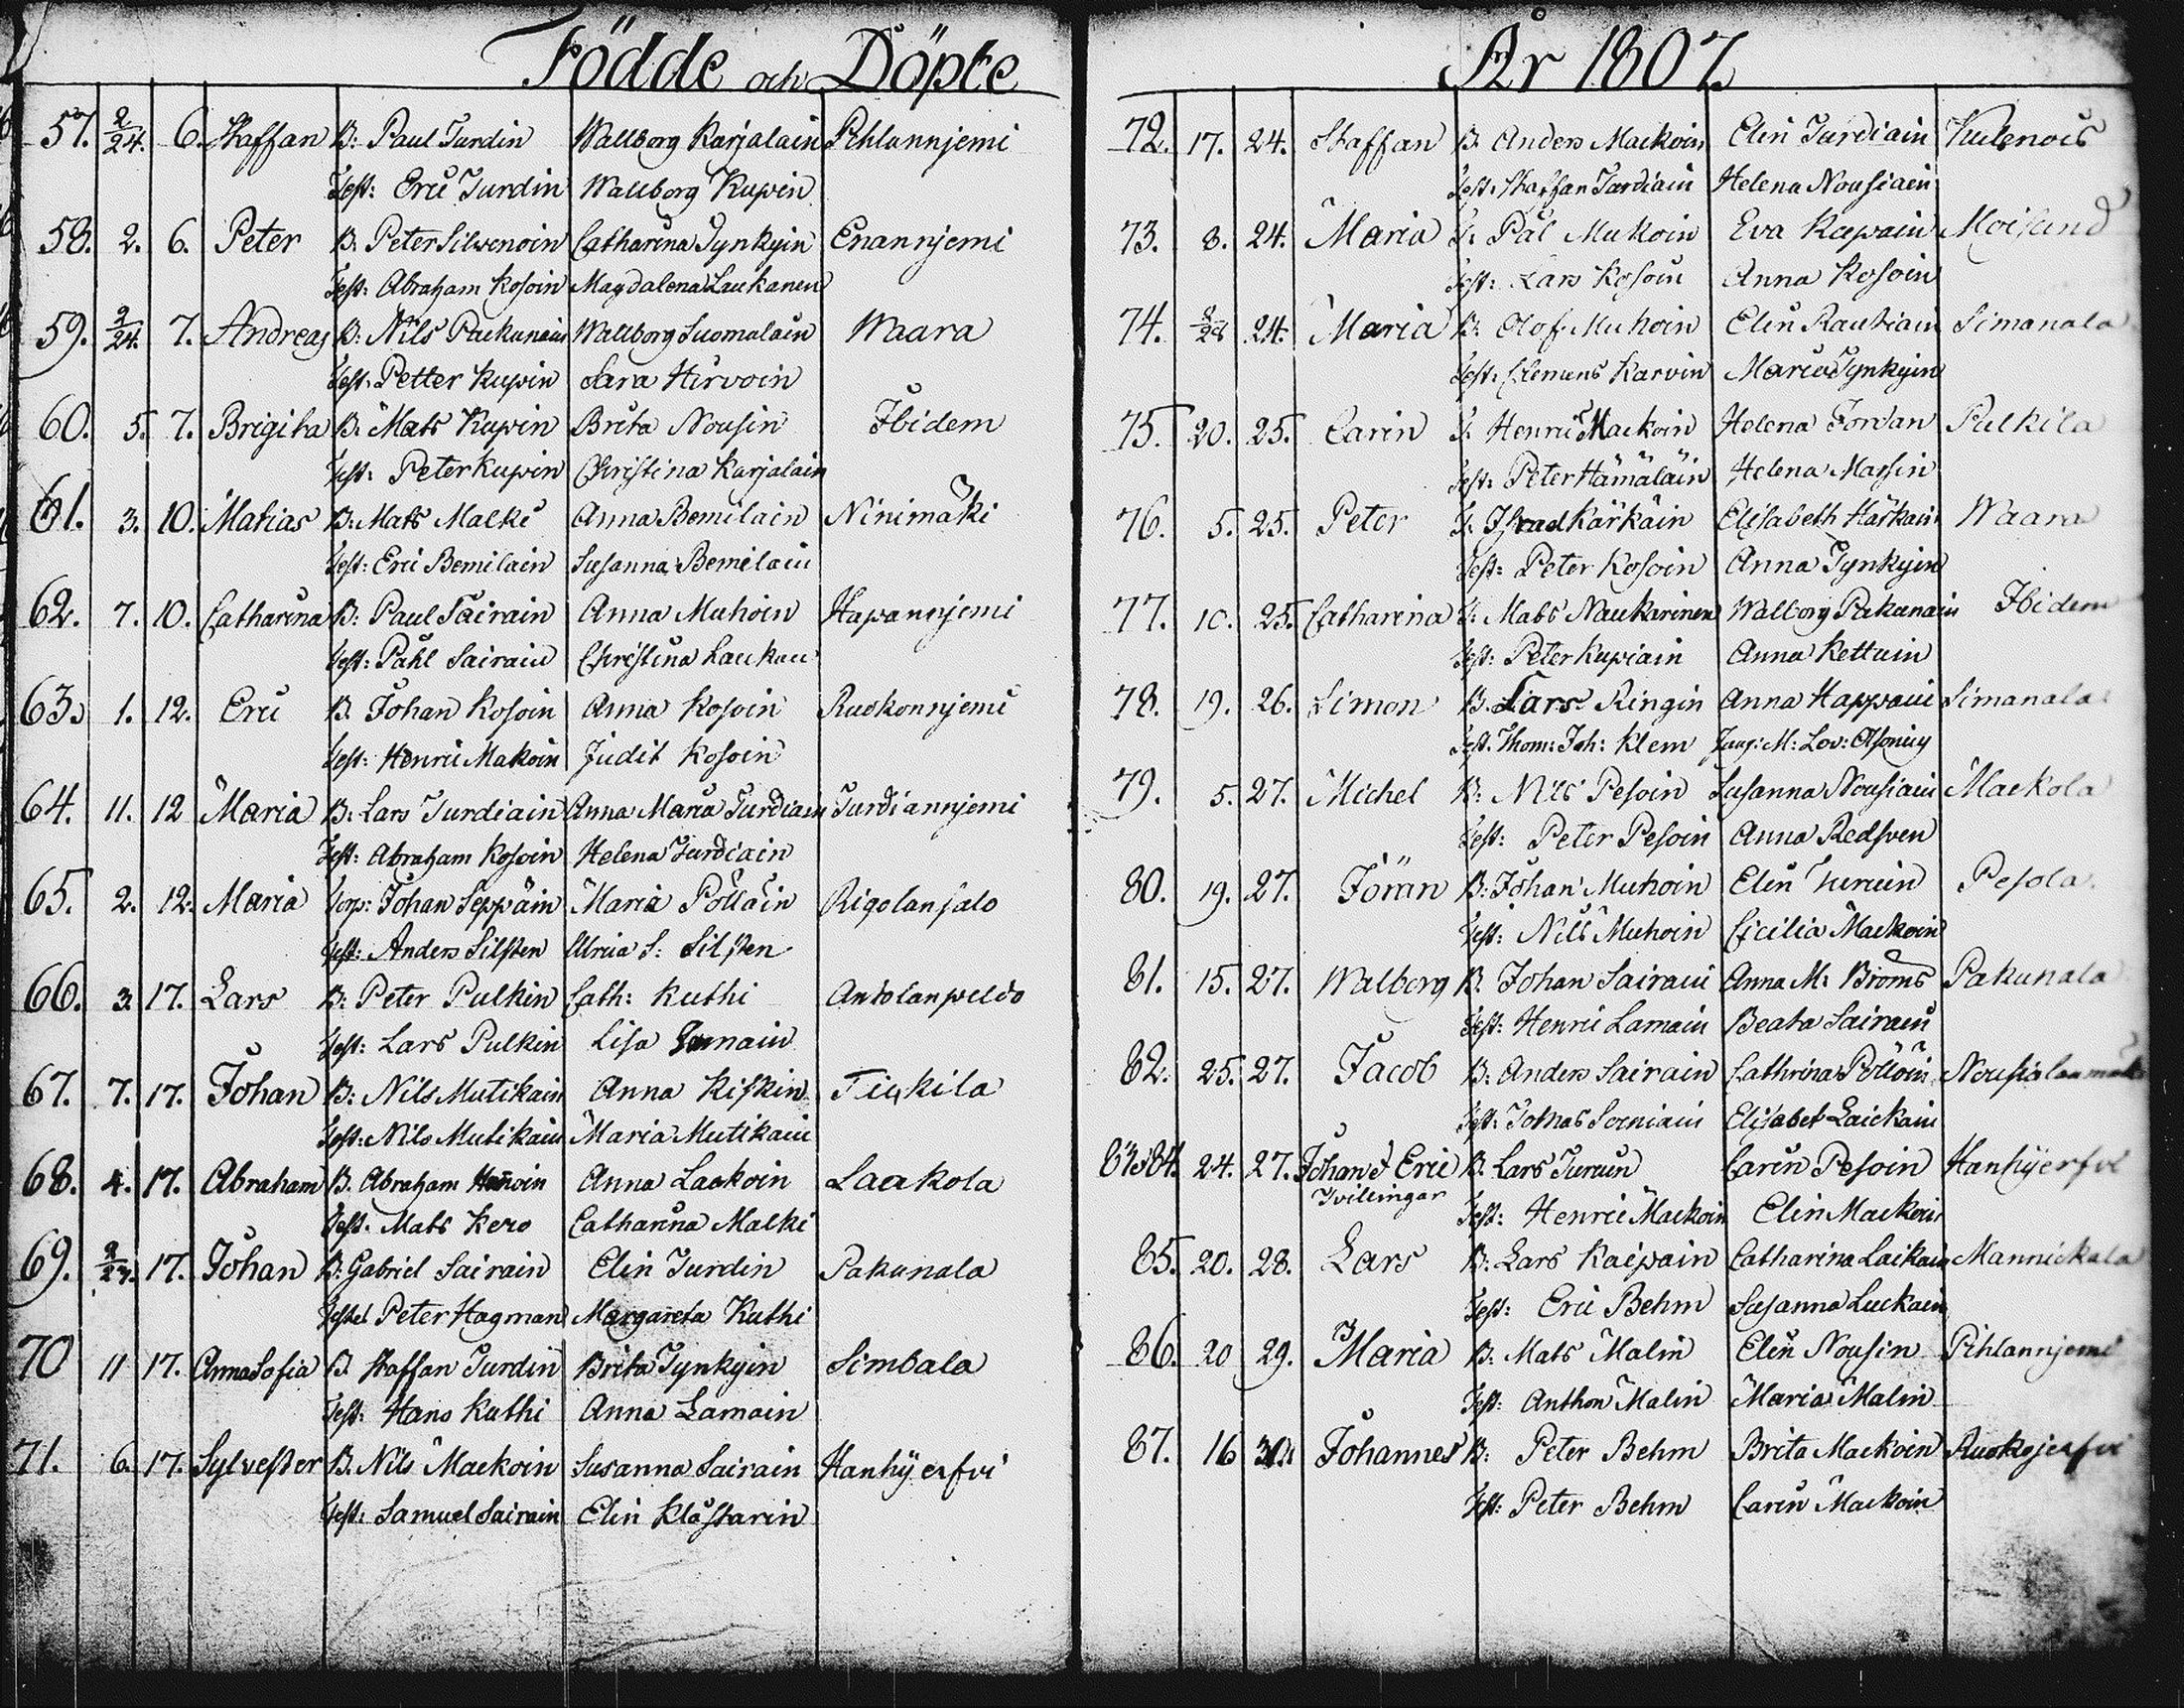 Födde och Döpte
57. 2/24. 6. Staffan B: Paul Turdin Wallborg Karjalain Pihlannjemi
Test: Eric Turdin Wallborg Kupin
58. 2. 6. Peter B. Peter Silvenoin Catharina Tynkyin Enannjemi
Test: Abraham Kosoin Magdalena Laukanen
59. 2/24. 7. Andreas B: Nils Pakunain Wallborg Suomalain Waara
Test: Petter Kupin Sara Hirvoin
60. 5. 7. Brigita B: Mats Kupin Brita Nousin Ibidem
Test: Peter Kupin Christina Karjalain
61. 3. 10. Matias B: Mats Malki Anna Bemilain Ninimäki
Test: Eric Bemilain Susanna Bemilain
62. 7. 10. Catharina B: Paul Sairain Anna Muhoin Hapannjemi
Test: Pahl Sairain Christina Laukan
63. 1. 12. Eric B. Johan Kosoin Anna Kosoin Ruokonnjemi
Test: Henric Makoin Judit Kosoin
64. 11. 12 Maria B: Lars Turdiain Anna Maria Turdiain Turdiannjemi
Test: Abraham Kosoin Helena Turdiain
65. 2. 12. Maria Torp: Johan Seppäin Maria Pölläin Rigolansalo
Test: Anders Silsten Ulrica S: Silsten
66. 3. 17. Lars B: Peter Pulkin Cath: Kuthi Antolanpeldo
Test: Lars Pulkin Lisa
67. 7. 17. Johan B: Nils Mutikain Anna Kiskin Tiukila
Test: Nils Mutikain Maria Mutikain
68. 4. 17. Abraham B. Abraham Anna Laakoin Laakola
Test. Mats Kero Catharina Malki
69. 17. Johan B: Gabriel Sairain Elin Turdin Pakunala
Test: Peter Hagman Margareta Kuthi
70 11 17. Anna Sofia B. Staffan Turdin Brita Tynkyin Simbala
Test: Hans Kuthi Anna Lamain
71. 6. 17. Sylvester B. Nils Mackoin Susanna Sairain Hanhijerfvi
Test: Samuel Sairain Elin Klåstarin
År 1807.
72. 17. 24. Staffan B. Anders Mackoin Elin Turdiain Kulenois
Test: Staffan Turdiain Helena Nousiain
73. 8. 24. Maria T. Pål Mukoin Eva Kupain Moisund
Test: Lars Kosoin Anna Kosoin
74. 24. Maria B. Olof Muhoin Elin Rautiain Simanala
Test: Clemens Karvin Maria Tynkyin
75. 20. 25. Carin T. Henric Mackoin Helena Fordan Pulkila
Test: Peter Hämäläin Helena Massin
76. 5. 25. Peter T. Israel Kärkäin Elisabeth Härkäin Waara
Test: Peter Kosoin Anna Tynkyin
77. 10. 25. Catharina T: Mats Naukarinen Walborg Pakunain Ibidem
Test: Peter Kupiain Anna Kettuin
78. 19. 26. Simon B. Lars Ringin Anna Happain Simanala
Test. Thom: Joh: Klem Jung: M: Lov: Alfonius
79. 5. 27. Michel B: Nils Pesoin Susanna Nousiain Mackola
Test: Peter Pesoin Anna Redsven
80. 19. 27. Jöran B: Johan Muhoin Elin Turuin Pesola.
Test: Nils Muhoin Cicilia Mackoin
81. 15. 27. Walborg B. Johan Sairain Anna M: Broms Pakunala
Test: Henric Lamain Beata Sairain
82. 25. 27. Jacob B: Anders Sairain Cathrina Pöllöin
Test: Elisabet Laickain
83. 84. 24. 27. Johan & Eric B. Lars Turuin Carin Pesoin Hanhijerfvi
Tvillingar Test: Henric Mackoin Elin Mackoin
85. 20. 28. Lars B: Lars Kaipain Catharina Laikain Mannickala
Test: Eric Behm Susanna Luckain
86. 20 29. Maria B: Mats Malin Elin Nousin Pihlannjemi
Test: Anthon Malin Maria Malin
87. 16 30. Johannes B: Peter Behm Brita Mackoin Ruokojerfvi
Test: Peter Behm Carin Mackoin